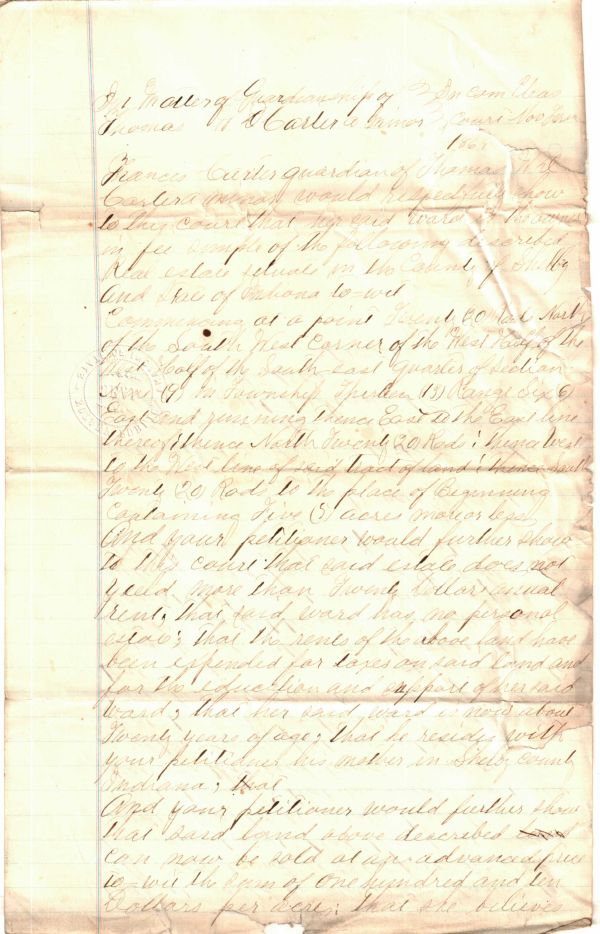 In Matter of Guardianship of } In Com Pleas
Thomas W D Carter a minor } Court Nov Term
186
Frances Carter guardian of Thomas W D
Carter a minor would respectfully show
to this court that her said ward is the owner
in fee simple of the following described
Real estate situate in the County of Shelby
and State of Indiana to=wit
Commencing at a point Twenty 20 Rods North
of the South West Corner of the West Half of the
West Half of the South East quarter of Section
in Township Thirteen (13) Range Six (6)
East and running thence East to the East line
thereof: thence North Twenty (20) Rods: thence West
to the West line of said tract of land: thence South
Twenty (20) Rods to the place of Beginning
Containing Five (5) acres more or less
And your petitioner would further show
to this court that said estate does not
yeild more than Twenty Dollars anual
rent; that said ward has no personal
estate; that the rents of the above land have
been expended for taxes on said land and
for the education and support of her said
ward; that her said ward is now about
Twenty years of age; that he resides with
your petitioner his mother in Shelby County
Indiana; that
And your petitioner would further show
that said land above described
can now be sold at an advanced price
to=wit the sum of One hundred and ten
Dollars per acre; that she believes